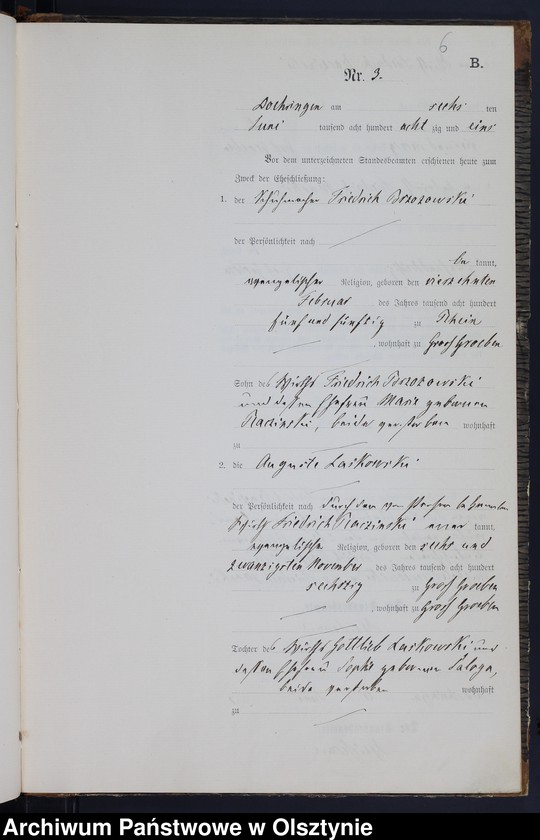 6
B.
Nr. 3.
Doehringen am sechs ten
Juni tausend acht hundert acht zig und eins
Vor dem unterzeichneten Standesbeamten erschienen heute zum
Zweck der Eheschließung:
1. der Schuhmacher Friedrich Brzozowski
der Persönlichkeit nach
be kannt,
evangelischer Religion, geboren den vierzehnten
Februar des Jahres tausend acht hundert
fünf und fünfzig zu Rhein
, wohnhaft zu Groß Groeben
Sohn des Wirths Friedrich Brzozowski
und dessen Ehefrau Marie geborenen
Raczinski, beide verstorben wohnhaft
zu
2. die Auguste Laskowski
der Persönlichkeit nach durch den von Person bekannten
Wirth Friedrich Raczinski aner kannt,
evangelische Religion, geboren den sechs und
zwanzigsten November des Jahres tausend acht hundert
sechszig zu Groß Groeben
, wohnhaft zu Groß Groeben
Tochter des Wirths Gottlieb Laskowski und
dessen Ehefrau Sophie geborenen Saloga,
beide verstorben wohnhaft
zu
Archiwum Państwowe w Olsztynie